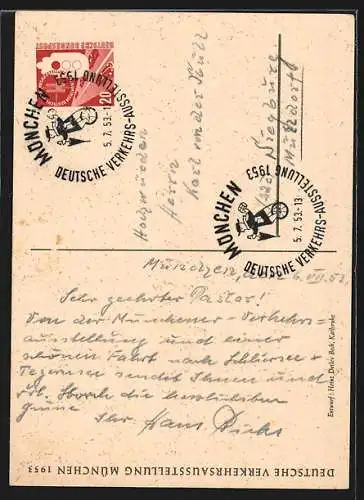 DEUTSCHE BUNDESPOST
20
MÜNCHEN
DEUTSCHE VERKEHRS-AUSSTELLUNG 1953
5.7.53-13
MÜNCHEN
DEUTSCHE VERKEHRS-AUSSTELLUNG 1953
5.7.53-13
Hochwürden
Herrn
Karl
Siegburg
München, den 6.VII.53.
Sehr geehrter Pastor!
Von der Münchener-Verkehrs=
ausstellung und einer
schönen Fahrt nach Schliersee +
Tegernsee sendet Ihnen und
die herzlichsten
Grüsse
Ihr Hans
Entwurf: Heinz Detlev Bork, Karlsruhe
DEUTSCHE VERKEHRSAUSSTELLUNG MÜNCHEN 1953